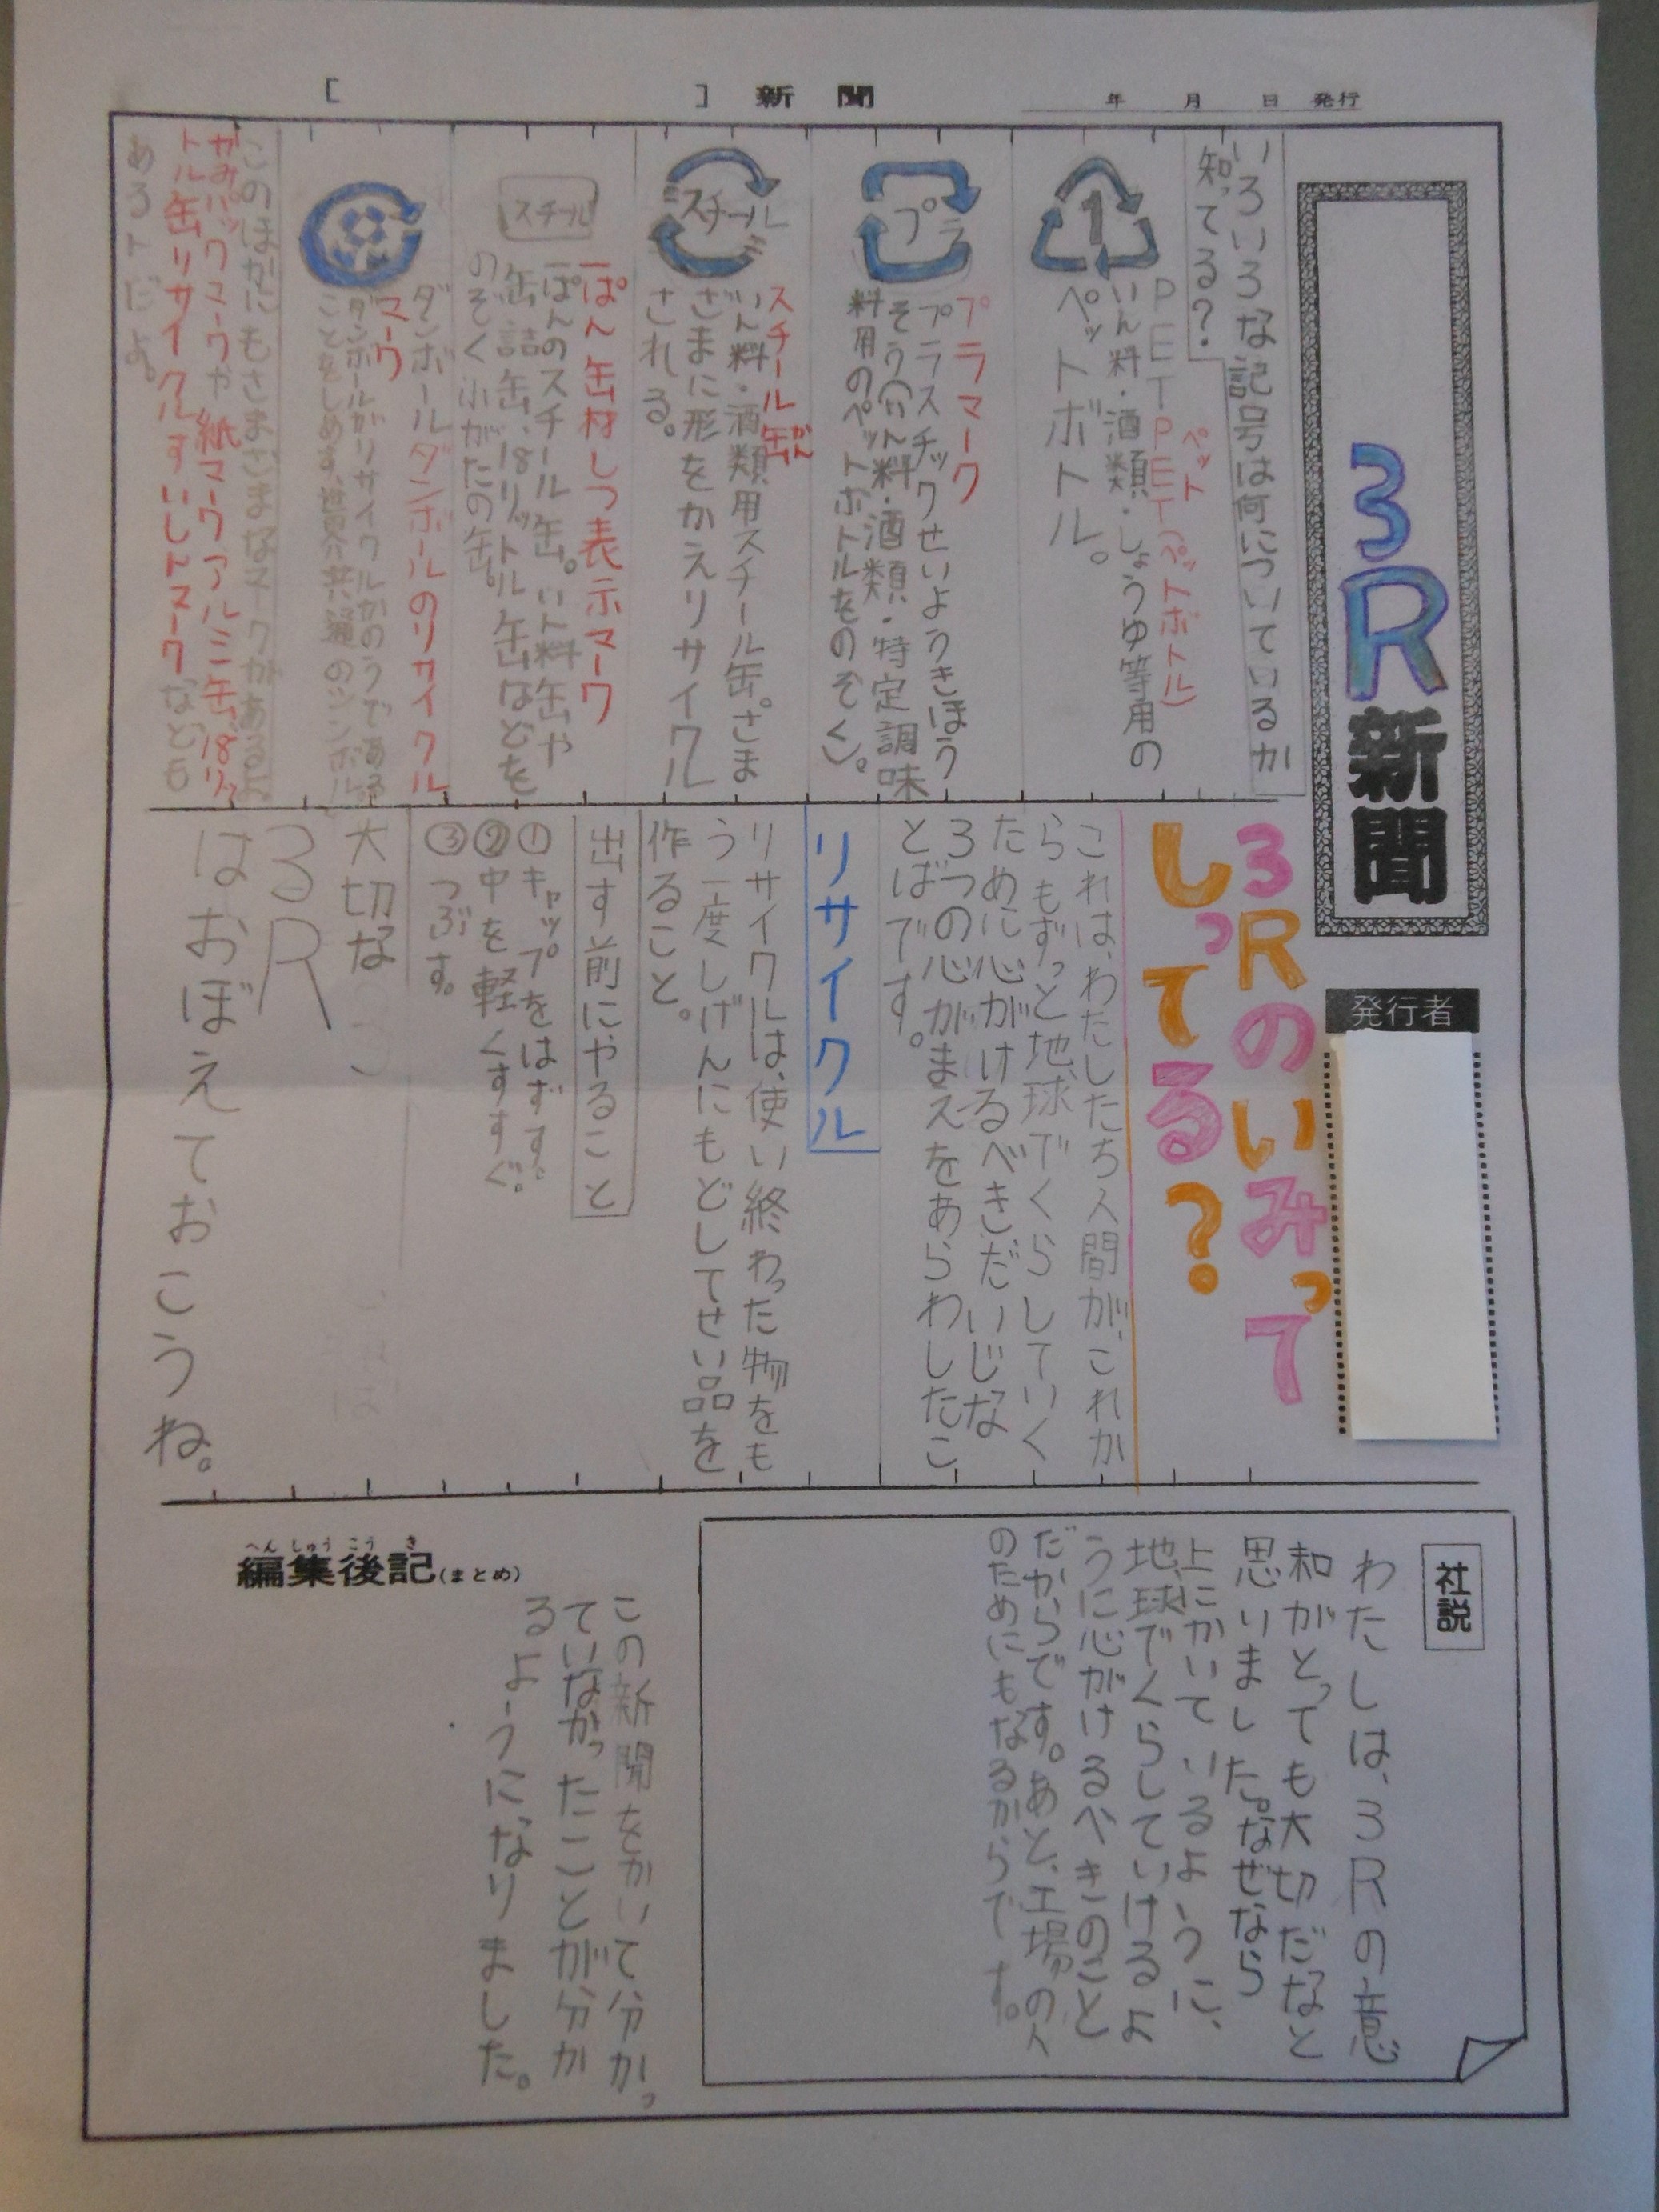 ［　］新聞
年　月　日　発行
3R新聞
発行者
いろいろな記号は何についているか
知ってる？
1
PETPET(ペットボトル)
ペット
いん料・酒類・しょうゆ等用の
ペットボトル。
プラ
プラマーク
プラスチックせいようきほう
そう(いん料・酒類・特定調味
料用のペットボトルをのぞく)。
スチール
スチール缶
かん
いん料・酒類用スチール缶。さま
ざまに形をかえリサイクル
される。
スチール
一ぱん缶材しつ表示マーク
一ぱんのスチール缶。いん料缶や
缶詰缶、18リットル缶などを
のぞく小がたの缶。
ダンボールダンボールのリサイクル
マーク
ダンボールがリサイクルかのうである
ことをしめす、世界共通のシンボル
このほかにもさまざまなマークがあるよ
かみパックマークや紙マークアルミ缶、18リッ
トル缶リサイクルすいしんマークなども
あるんだよ。
3Rのいみって
しってる？
これは、わたしたち人間が、これか
らもずっと地球でくらしていく
ために心がけるべきだいじな
3つの心がまえをあらわしたこ
とばです。
リサイクル
リサイクルは、使い終わった物をも
う一度しげんにもどしてせい品を
作ること。
出す前にやること
①キャップをはずす。
②中を軽くすすぐ。
③つぶす。
大切な
3R
はおぼえておこうね。
社説
わたしは、3Rの意
和がとっても大切だなと
思いました。なぜなら
上にかいているように、
地球でくらしていけるよ
うに心がけるべきのこと
だからです。あと、工場の人
のためにもなるからです。
編集後記(まとめ)
へんしゅうこうき
この新聞をかいて分かっ
ていなかったことが分か
るようになりました。